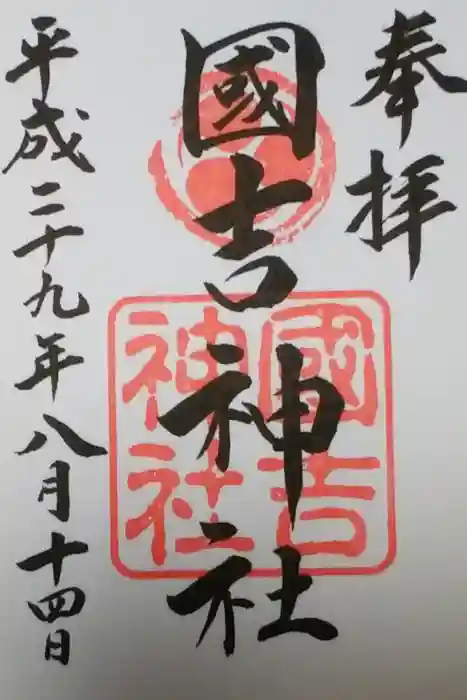 奉拝
國吉神社
國吉
神社
平成二十九年八月十四日